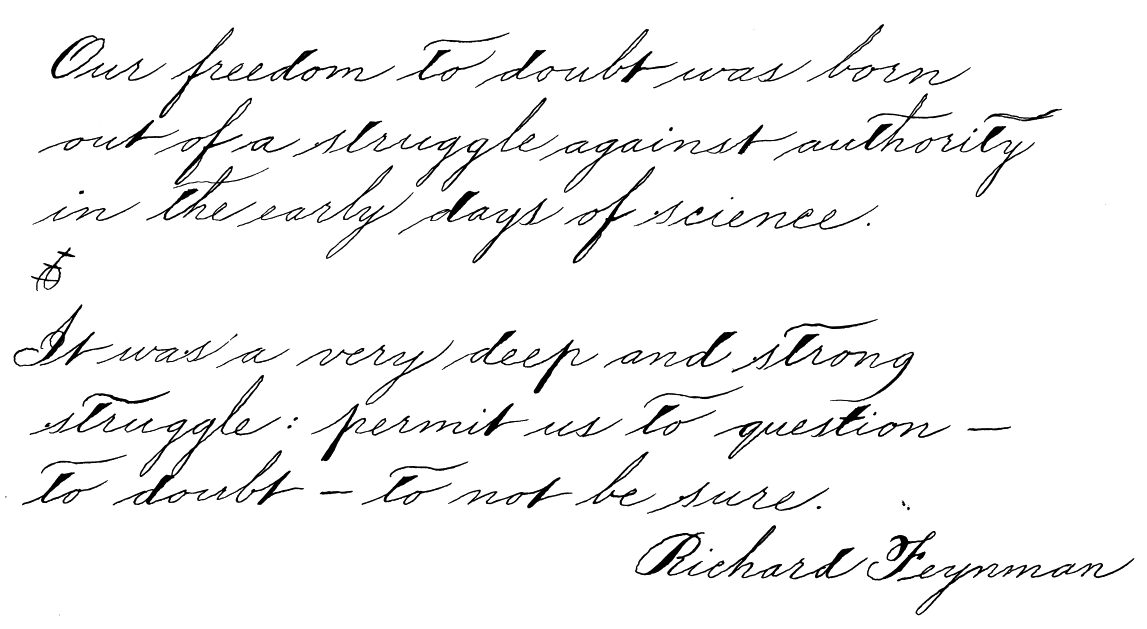 Our freedom to doubt was born
out of a struggle against authority
in the early days of science.
It was a very deep and strong
struggle: permit us to question —
to doubt — to not be sure.
Richard Feynman